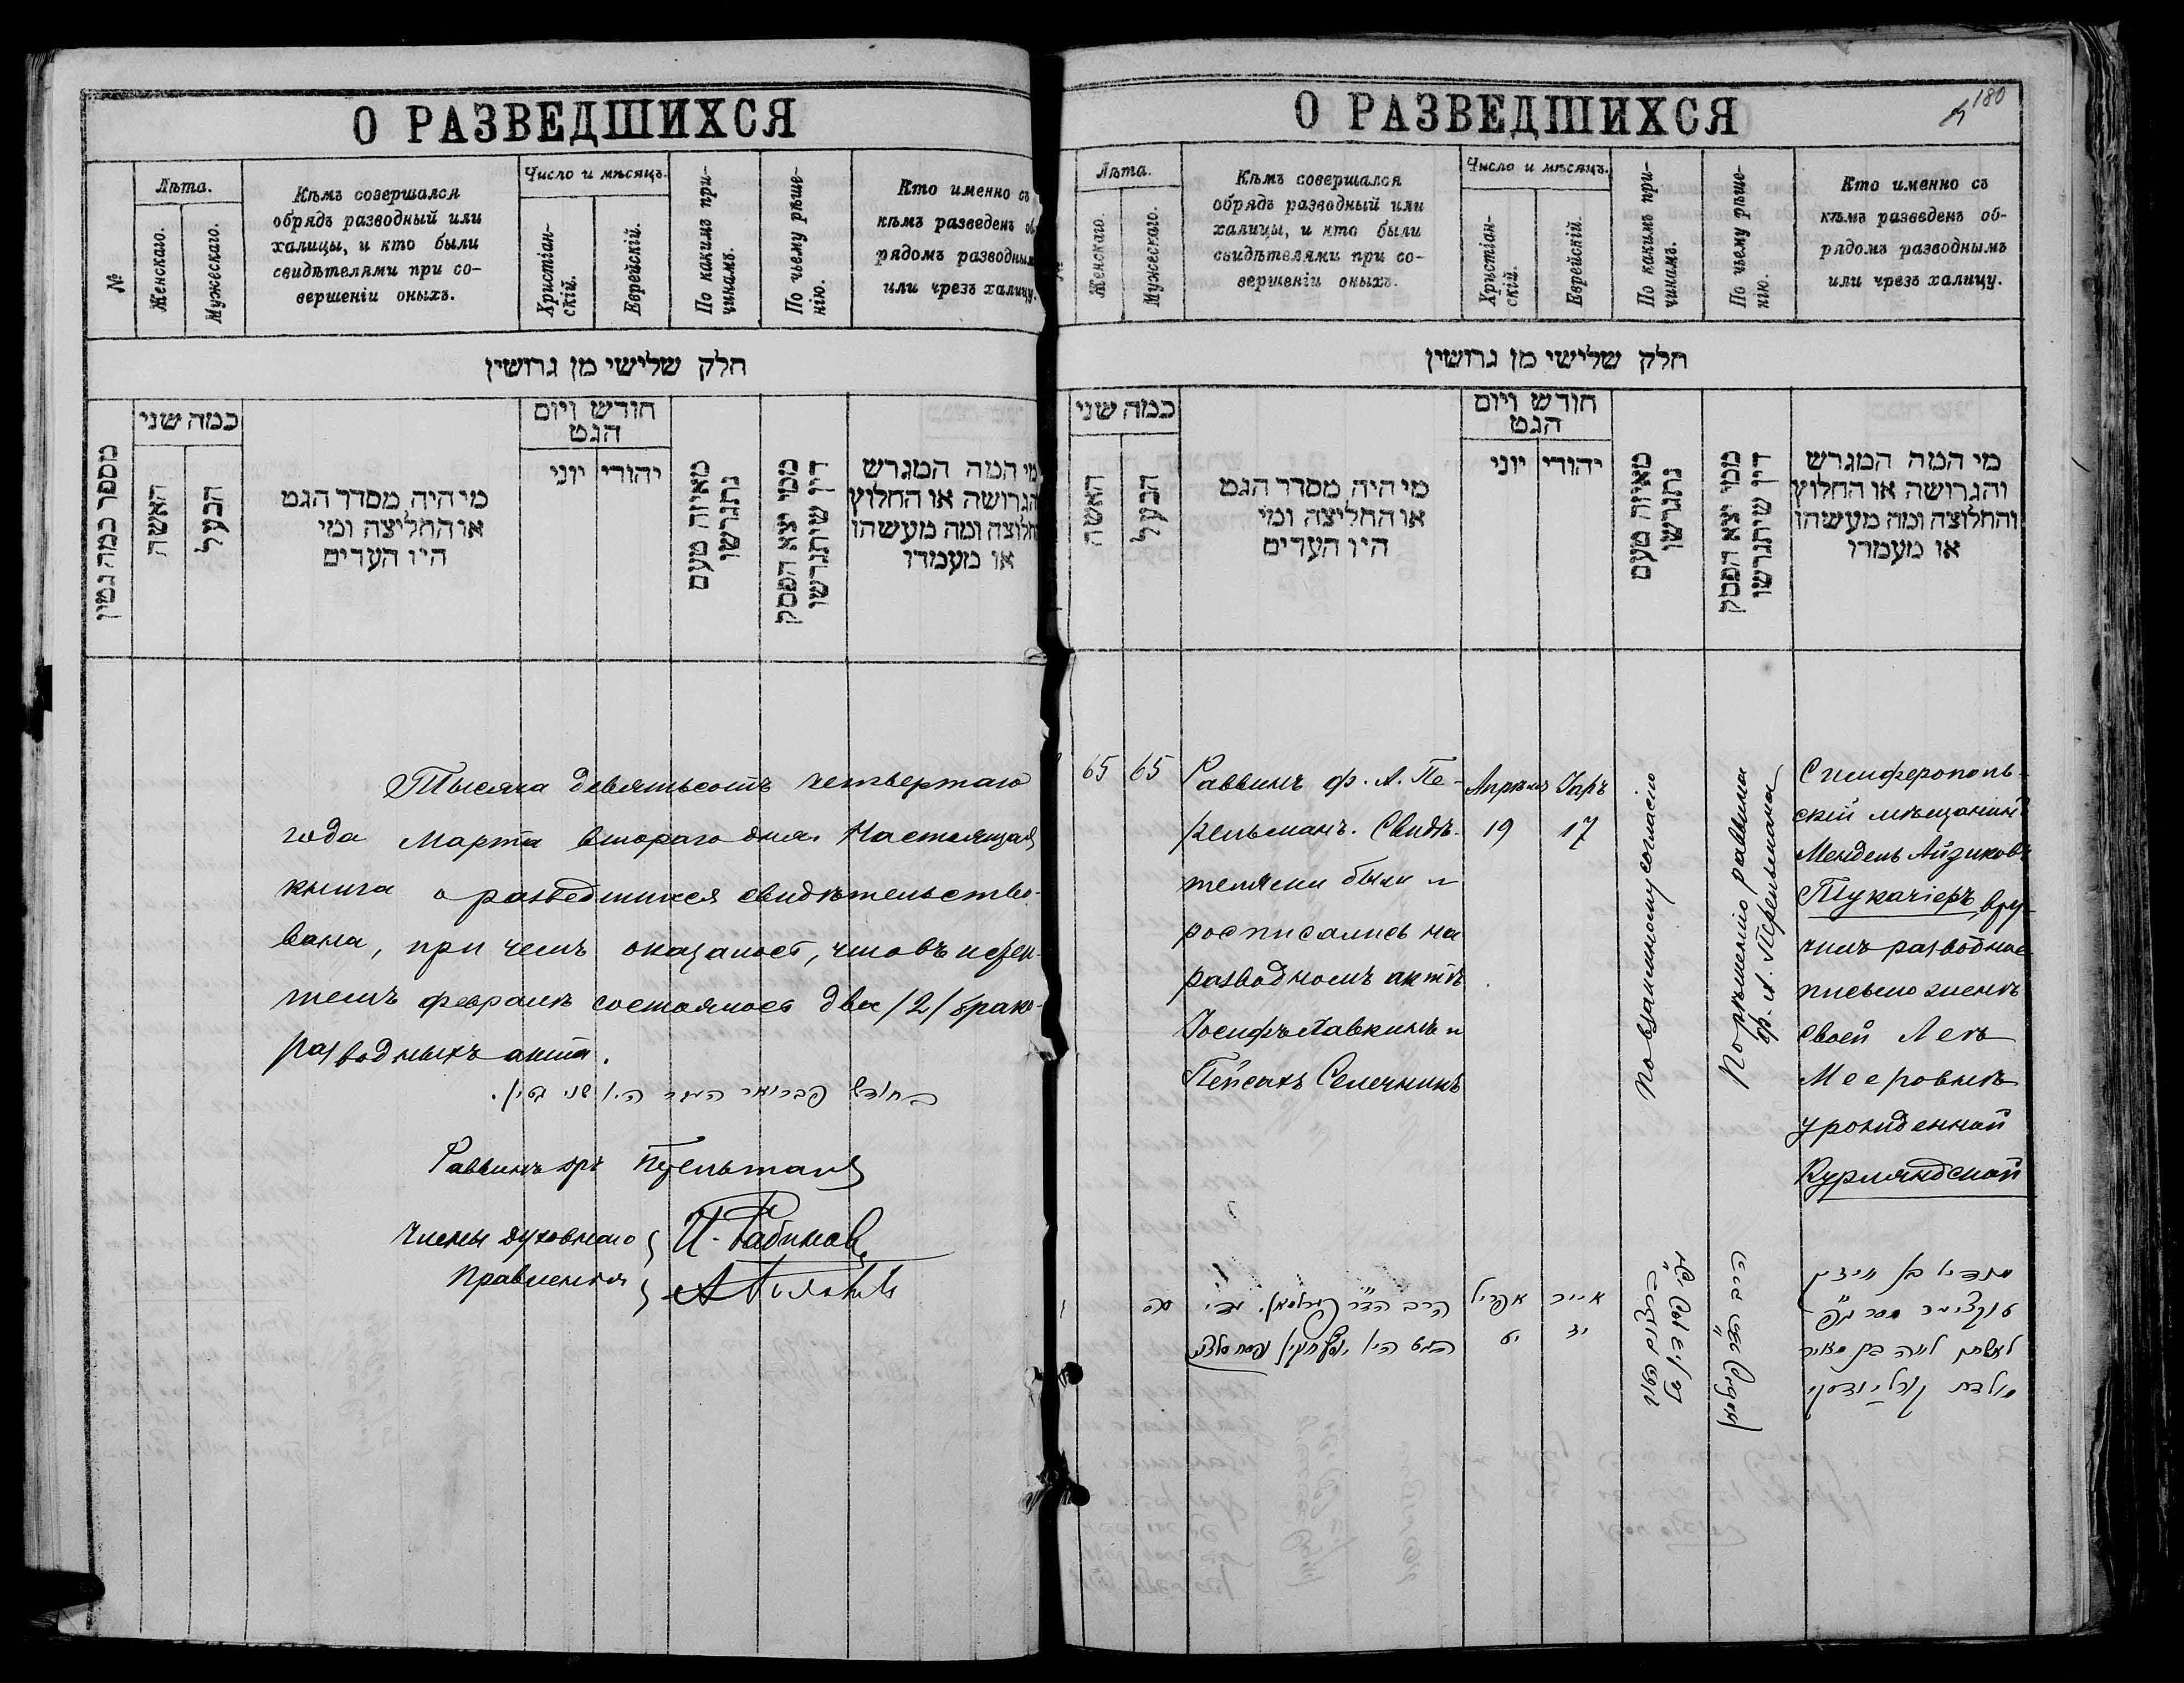 О РАЗВЕДШИХСЯ
№
Лѣта.
Женскаго.
Мужескаго.
Кѣмъ совершался
обрядъ разводный или
халицы, и кто были
свидѣтелями при со-
вершеніи оныхъ.
Число и мѣсяцъ.
Христіан-
скій.
Еврейскій.
По какимъ при-
чинамъ.
По чьему рѣше-
нію.
Кто именно съ
кѣмъ разведенъ об
рядомъ разводным
или чрезъ халицу.
חלק שלישי מן גרושין
מספר כמה גטין
כמה שני
האשה
הבעל
מי היה מסדר הגט
או החליצה ומי
היו העדים
חודש ויום
הגט
יוני
יהודי
מאיזה טעם
נתגרשו
ממי יצא הפסק
דין שיתגרשו
מי המה המגרש
הגרושה או החלוץ
חלוצה ומה מעשהו
או מעמדו
Тысяча девятьсотъ четвертаго
года Марта втораго дня. Настоящая
книга о разведшихся свидѣтельство-
вана, при чемъ оказалось, что въ истек-
шемъ февралѣ состоялось два /2/ брако-
разводныхъ акта.
בחודש פברואר העבר היו שני גטין.
Раввинъ др Перельманъ
Члены духовнаго
Правленія
О РАЗВЕДШИХСЯ
180
Лѣта.
Женскаго.
Мужескаго.
Кѣмъ совершался
обрядъ разводный или
халицы, и кто были
свидѣтелями при со-
вершеніи оныхъ.
Число и мѣсяцъ.
Христіан-
скій.
Еврейскій.
По какимъ при-
чинамъ.
По чьему рѣше-
нію.
Кто именно съ
кѣмъ разведенъ об-
рядомъ разводнымъ
или чрезъ халицу.
חלק שלישי מן גרושין
כמה שני
האשה
הבעל
מי היה מסדר הגט
או החליצה ומי
היו העדים
חודש ויום
הגט
יוני
יהודי
מאיזה טעם
נתגרשו
ממי יצא הפסק
דין שיתגרשו
מי המה המגרש
והגרושה או החלוץ
והחלוצה ומה מעשהו
או מעמדו
65
65
Раввинъ ф. А. Пе-
рельманъ. Свидѣ-
телями были и
росписались на
разводномъ актѣ
Іосифъ Хавкинъ и
Пейсахъ Селечникъ
Апрѣль
19
Іаръ
17
По взаимному согласію
По рѣшенію раввина
ф. А. Перельмана
Симферополь-
скій мѣщанинъ
Мендель Айзиковъ
Тукачіеръ, вру-
чилъ разводное
письмо женѣ
своей Леѣ
Мееровнѣ
урожденной
Курляндской
סה
אפריל
יט
אייר
יז
לאשתו לאה בת מאיר